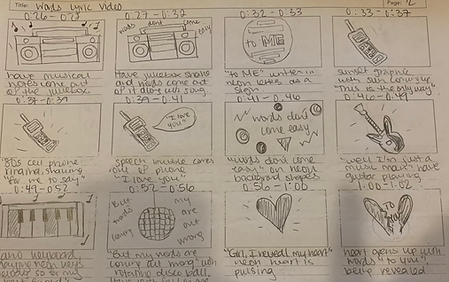 Title: Words Lyric Video
Page: 2
0:26 - 0:27
0:27 - 0:32
0:32 - 0:33
0:33 - 0:37
words don't come easy
to ME
have musical
notes come out
of the jukebox
Have jukebox shake
and words come out
of it along w/ song
"to ME" written in
neon letters as a
sign
sunset graphic
with sun coming up
"This is the only way"
0:37 - 0:39
0:39 - 0:41
0:41 - 0:46
0:46 - 0:49
"I love
you"
words don't
come easy
80s cell phone
ringing, shaking
"for me to say"
speech bubble comes
out of phone
"I love you"
"words don't come
easy" on neon
background shapes
"well I'm just a
music man" have
guitar playing
0:49 - 0:52
0:52 - 0:56
0:56 - 1:00
1:00 - 1:02
but my
words are
coming out
wrong
to you
piano keyboard
playing neon keys
"But my words are
coming out wrong" w/
rotating disco ball
"Girl, I reveal my heart"
neon heart is
pulsing
heart opens up with
words "to you"
being revealed